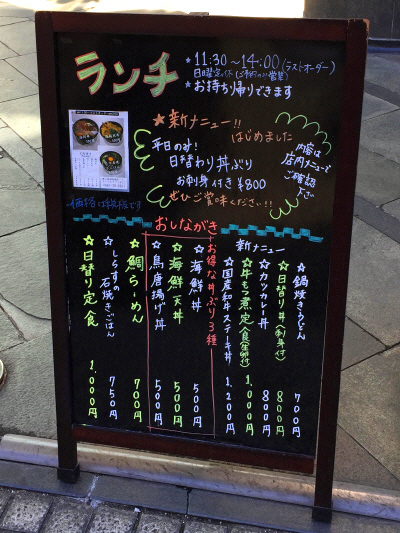 ランチ
★11:30〜14:00(ラストオーダー)
★お持ち帰りできます
★新メニュー!!
はじめました
平日のみ!
日替わり丼ぶり
お刺身付き ¥800
ぜひご賞味ください!!
内容は
店内メニューで
ご確認
下さい
価格は税抜です
おしながき
新メニュー
☆鍋焼きうどん 700円
☆日替り丼(刺身付) 800円
☆カツカレー丼 800円
☆牛もつ煮定食(生卵付) 1,000円
☆国産和牛ステーキ丼 1,200円
お得な丼ぶり3種
☆海鮮丼 500円
☆海鮮天丼 500円
☆鳥唐揚げ丼 500円
☆鯛らーめん 700円
☆しらすの石焼きごはん 750円
☆日替り定食 1,000円